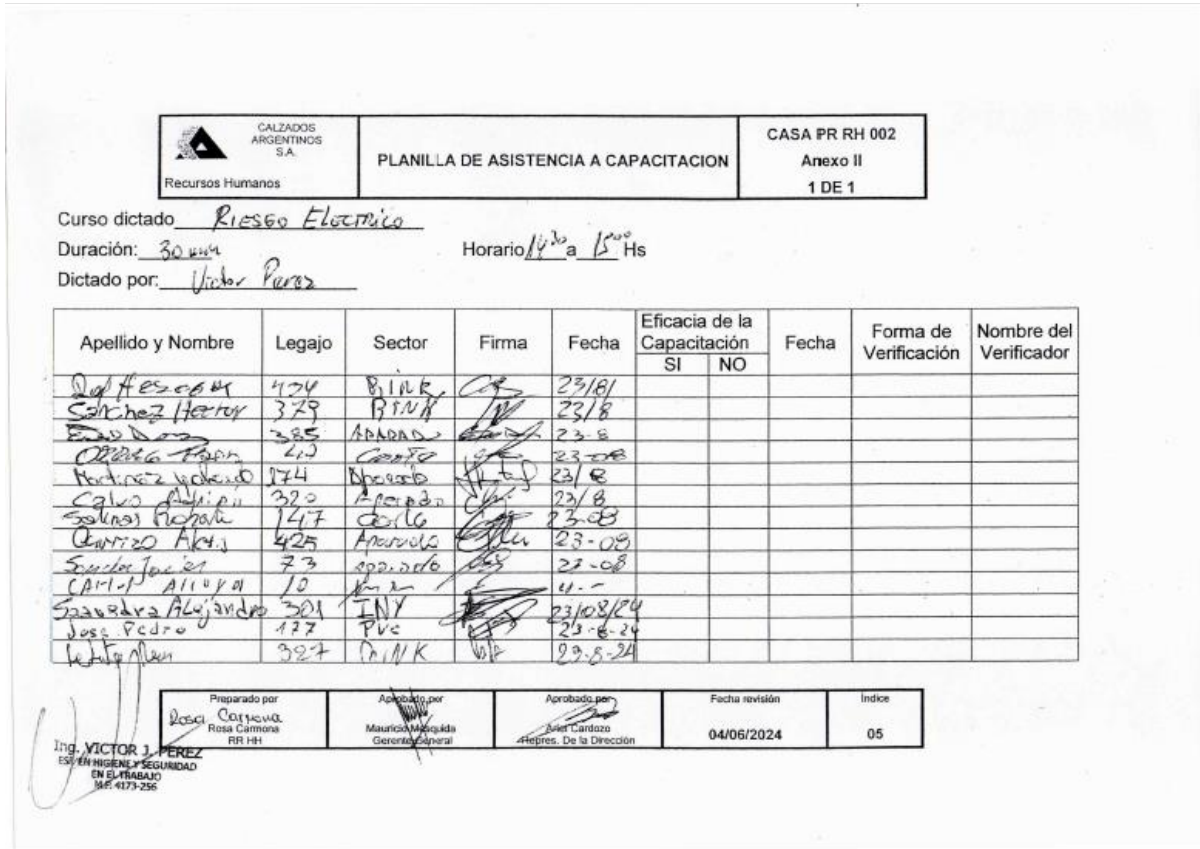 CALZADOS
ARGENTINOS
S.A.
Recursos Humanos
PLANILLA DE ASISTENCIA A CAPACITACION
CASA PR RH 002
Anexo II
1 DE 1
Curso dictado RIESGO ELECTRICO
Duración: 30 min Horario 14 30 a 15 00 Hs
Dictado por: Victor Perez
Apellido y Nombre Legajo Sector Firma Fecha Eficacia de la Capacitación SI NO Fecha Forma de Verificación Nombre del Verificador
434 BINK 23/8/
Sanchez Hector 379 BINK 23/8
385 23-8
23-08
Martinez 174 Aparado 23/8
Calvo 320 23/8
Salinas 147 Corte 23-08
Carrizo 425 Aparado 23-08
Javier 73 aparado 23-08
Carlos Arroyo 10
Saavedra Alejandro 301 INY 23/08/24
Jose Pedro 177 PVC 23-8-24
327 23-8-24
Preparado por
Rosa Carmona
Rosa Carmona
RR HH
Aprobado por
Mauricio Mesquida
Gerente General
Aprobado por
Ariel Cardozo
Repres. De la Dirección
Fecha revisión
04/06/2024
Indice
05
Ing. VICTOR J. PEREZ
ESP. EN HIGIENE Y SEGURIDAD
EN EL TRABAJO
M.P. 4173-256